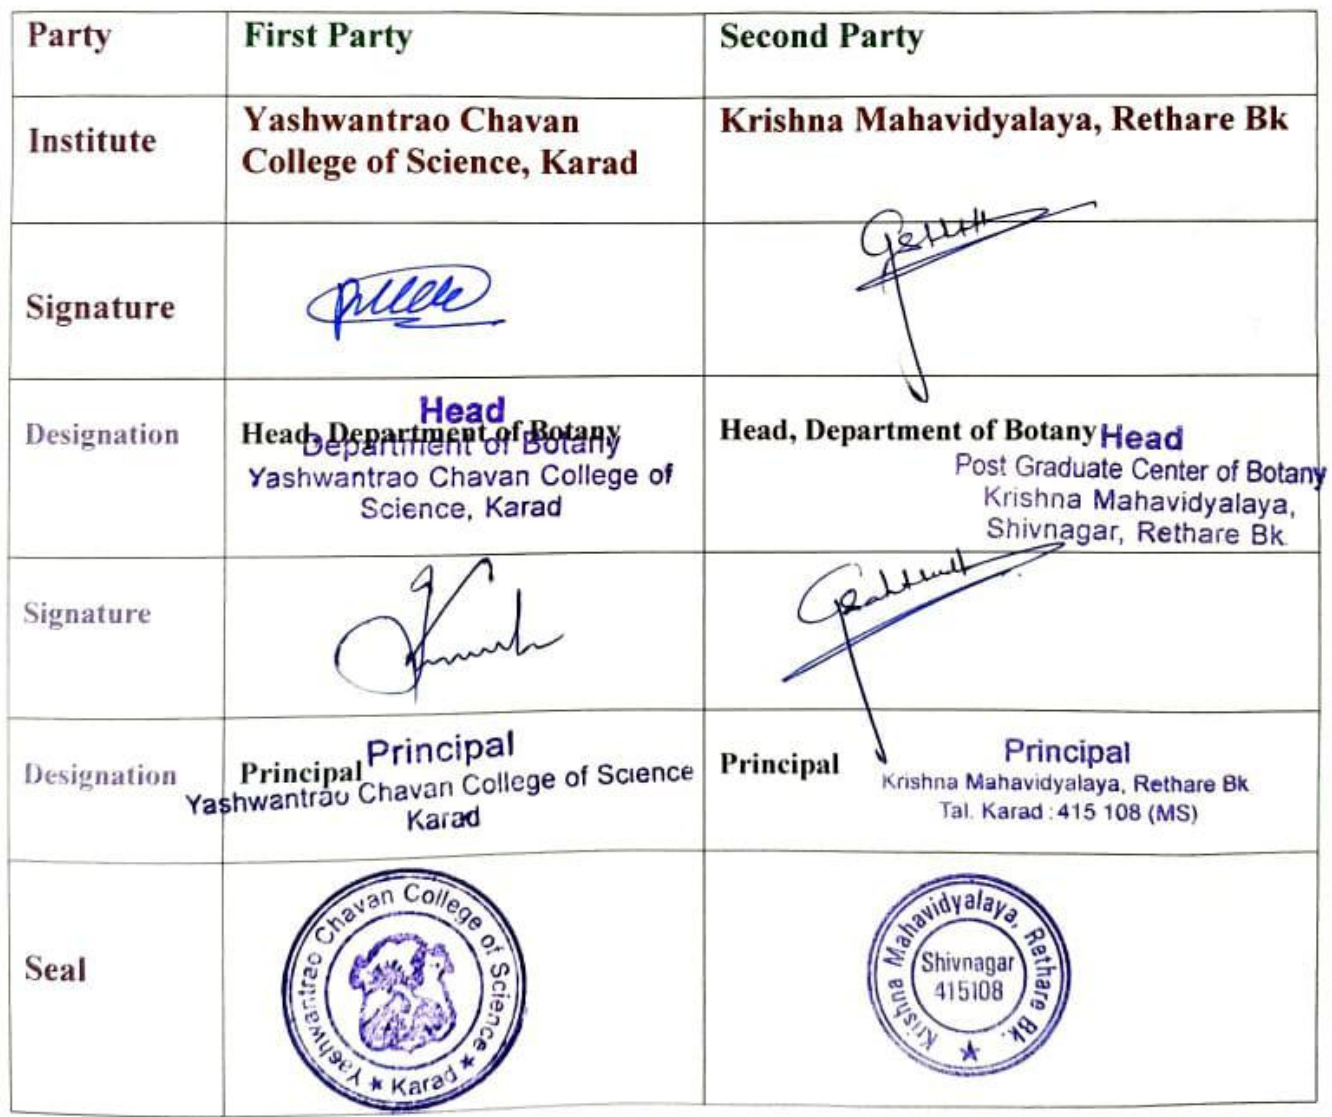 Party
First Party
Second Party
Institute
Yashwantrao Chavan
College of Science, Karad
Krishna Mahavidyalaya, Rethare Bk
Signature
Designation
Head, Department of Botany
Head
Department of Botany
Yashwantrao Chavan College of
Science, Karad
Head, Department of Botany
Head
Post Graduate Center of Botany
Krishna Mahavidyalaya,
Shivnagar, Rethare Bk
Signature
Designation
Principal
Principal
Yashwantrao Chavan College of Science
Karad
Principal
Principal
Krishna Mahavidyalaya, Rethare Bk
Tal. Karad : 415 108 (MS)
Seal
Yashwantrao Chavan College of Science
★ Karad ★
Krishna Mahavidyalaya, Rethare Bk. ★
Shivnagar
415108